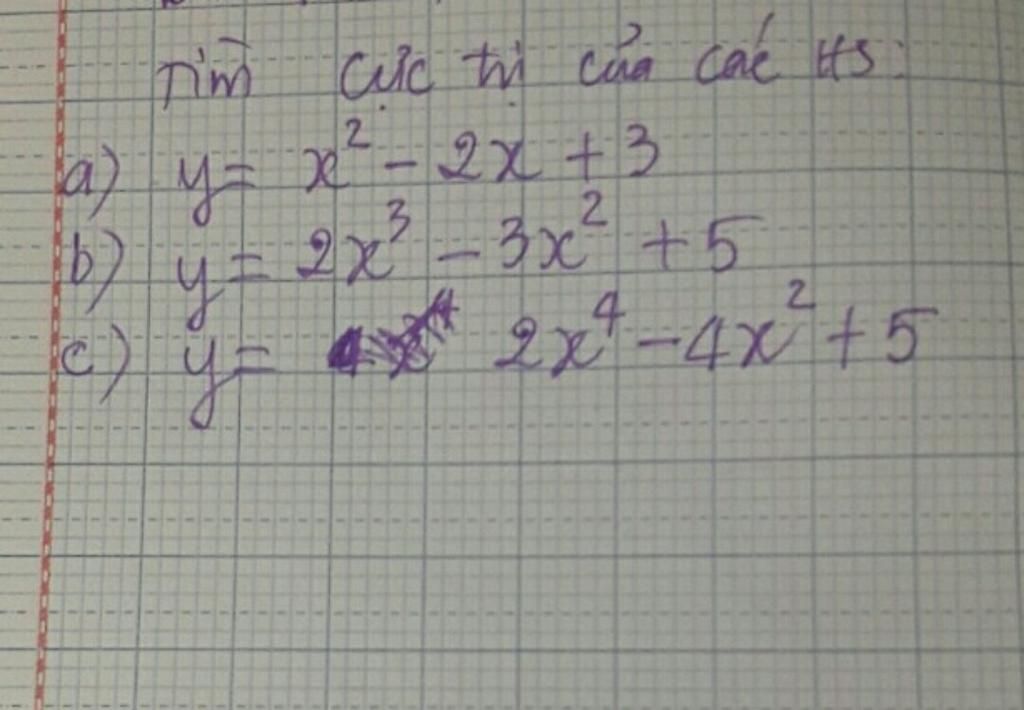 Tìm cực trị của các HS:
a) y = x² - 2x + 3
b) y = 2x³ - 3x² + 5
c) y = 2x⁴ - 4x² + 5